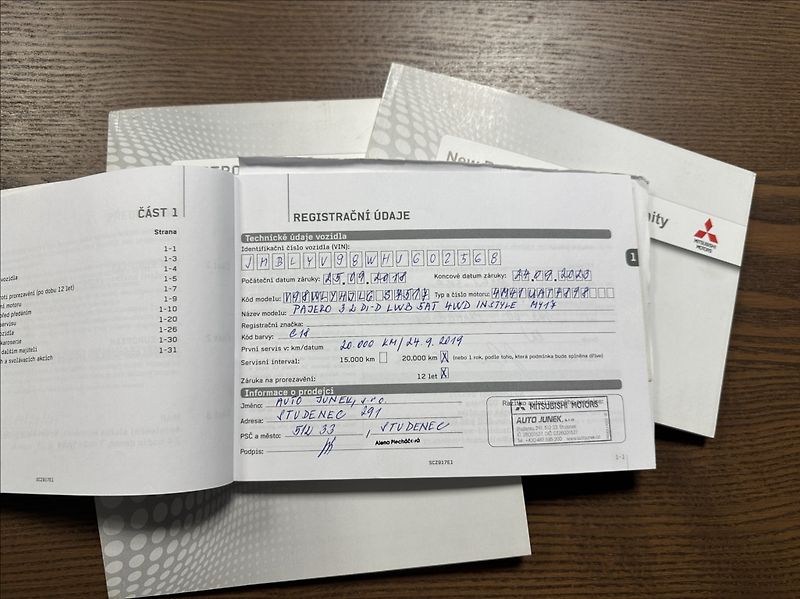 ČÁST 1
Strana
1-1
1-3
vozidla 1-4
1-5
roti prorezavění (po dobu 12 let) 1-7
motoru 1-9
před předáním 1-10
servisu 1-20
ozidla 1-26
karoserie 1-30
dalším majiteli 1-31
a svolávacích akcích
SCZ0917E1
New
nity
MITSUBISHI
MOTORS
REGISTRAČNÍ ÚDAJE
Technické údaje vozidla
Identifikační číslo vozidla (VIN):
JMBLYV98WHJ602568
Počáteční datum záruky: 25.09.2018 Koncové datum záruky: 24.09.2023
Kód modelu: Typ a číslo motoru:
Název modelu: PAJERO 3.2 DI-D LWB 5AT 4WD INSTYLE MY17
Registrační značka:
Kód barvy: C18
První servis v: km/datum 20.000 KM/24.9.2019
Servisní interval: 15.000 km 20.000 km X (nebo 1 rok, podle toho, která podmínka bude splněna dříve)
Záruka na prorezavění: 12 let X
Informace o prodejci
Jméno: AUTO JUNEK, s.r.o.
Adresa: STUDENEC 291
PSČ a město: 512 33, STUDENEC
Podpis: Alena Plecháčová
MITSUBISHI MOTORS
AUTO JUNEK, s.r.o.
SCZ0917E1
1-1
1